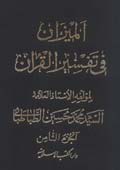 الميزان
في تفسير القرآن
لمؤلفه الأستاذ العلامة
السيد محمد حسين الطباطبائي
الجزء الثامن